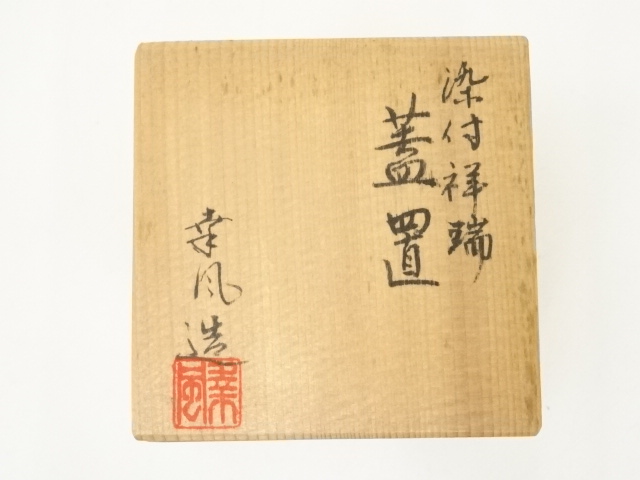 染付祥瑞
蓋置
幸風造
幸風